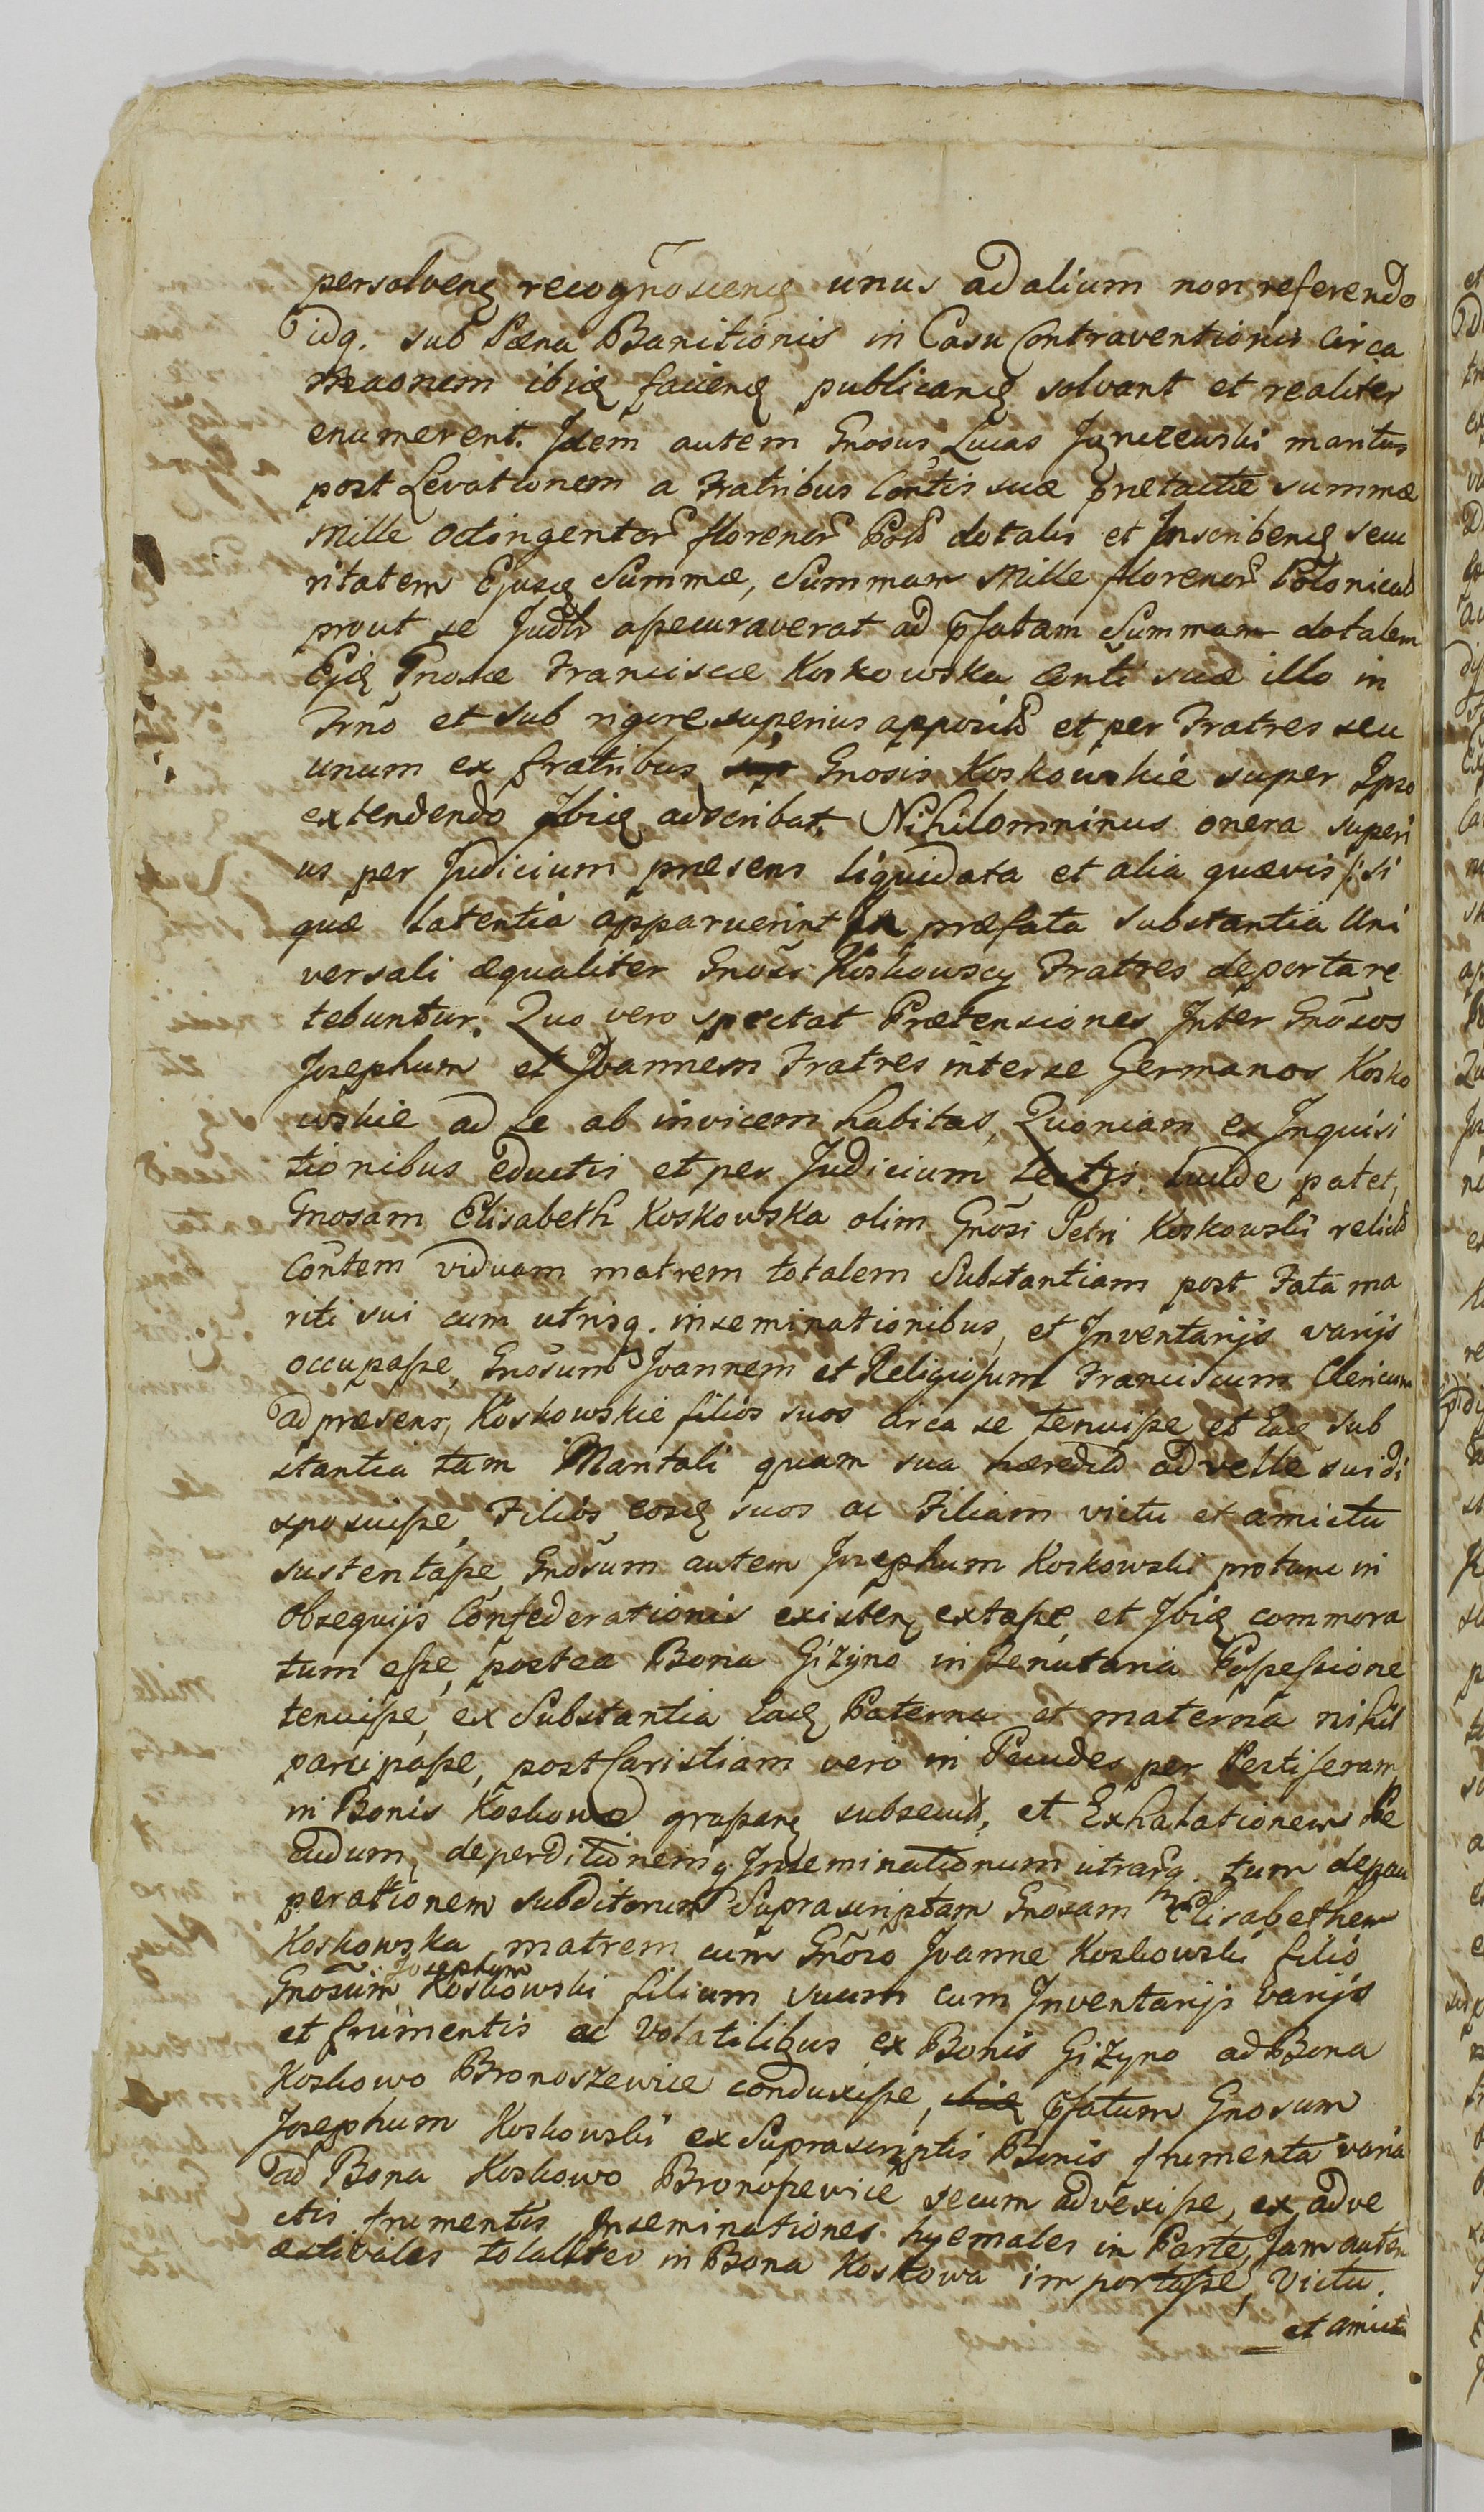 persolven. recognoscen. unus ad alium non referendo
idq. sub Pæna Banitionis in Casu Contraventionis circa
ibid. facien. publican. solvant et realiter
enumerent. Idem autem Gnosus Lucas maritus
post Levationem a Fratribus Contis suæ prætactæ summæ
mille octingentor. florenor. Pol. dotalis et Inscriben. secu
ritatem Ejusd. Summæ, Summam Mille florenor. Polonical.
prout se Judlr aßecuraverat ad pfatam Summam dotalem
Ejd. Gnosæ Franciscæ Koskowska Conti suæ illo in
Frño et sub rigore superius apposito et per Fratres seu
unum ex fratribus Gnosis Koskowskie super Ipso
extendendo Ibid. adscribat. Nihilominus onera superi
us per Judicium præsens liquidata et alia quævis /: si
quæ latentia apparuerint In præfata Substantia Uni
versali æqualiter Gnosi Koskowscy Fratres deportare
tebuntur. Quo vero spectat Prætensiones Inter Gnosos
Josephum et Joannem Fratres inter se Germanos Kosko
wskie ad se ab invicem habitas, Quoniam ex Inquisi
tionibus eductis et per Judicium lectis luilde patet,
Gnosam Elisabeth Koskowska olim Gnosi Petri Koskowski relict.
Contem viduam matrem totalem Substantiam post Fata ma
riti sui cum utrisq. inseminationibus, et Inventarijs varijs
occupaße, Gnosum Joannem et Religiosum Franciscum Clericum
ad præsens, Koskowskie filios suos circa se tenuiße et Ead. Sub
stantia tam Maritali quam sua hæredit. ad velle sui di
sposuiße, Filios eosd. suos ac Filiam victu et amictu
sustentaße, Gnosum autem Josephum Koskowski pro tunc in
obsequijs Confederationis existen. extaße, et Ibid. commora
tum eße, postea Bona Giżyno in Tenutaria Poßeßione
tenuiße, ex Substantia Ead. Paterna et materna nihil
parcipaße, post Caristiam vero in Pecudes per Pestiferam
in Bonis Koskowo graßan. subsecut. et Exhalationem Pe
cudum, deperditionemq. Inseminationum utrarq. tum depau
perationem subditorum Suprascriptam Gnosam Elisabethem
Koskowska matrem cum Gnoso Joanne Koskowski filio
Gnosum Josephum Koskowski filium suum cum Inventarijs varijs
et frumentis ac Volatilibus ex Bonis Giżyno ad Bona
Koskowo Bronoszewice conduxiße, ibid. pfatum Gnosum
Josephum Koskowski ex Suprascriptis Bonis frumenta varia
ad Bona Koskowo Bronoßewice secum advexiße, ex adve
ctis frumentis Inseminationes hyemales in Parte, Jam autem
æstivales totaliter in Bona Koskowa importaße, Victu.
et amictu